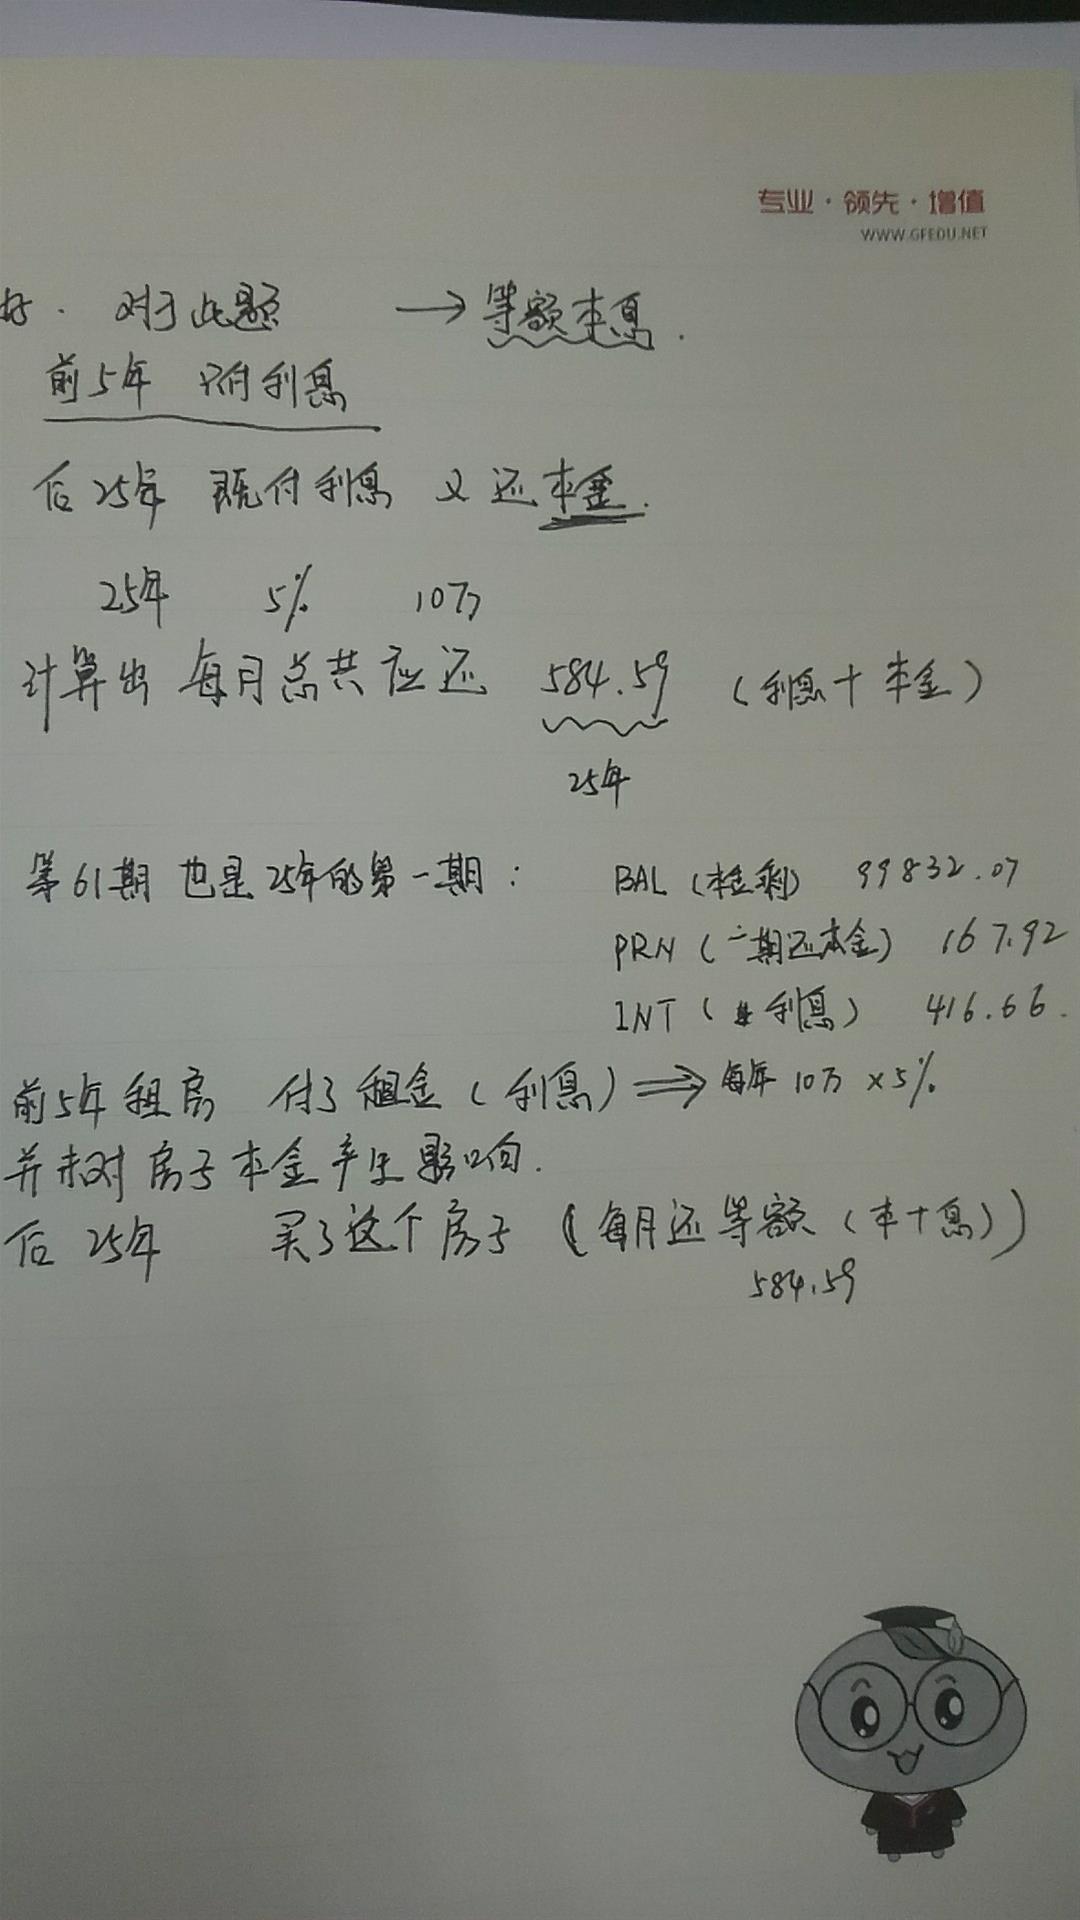 专业·领先·增值
WWW.GFEDU.NET
对于此题 → 等额本息.
前5年 只付利息
后25年 既付利息 又还本金.
25年 5% 10万
计算出 每月总共应还 584.59 (利息+本金)
25年
第61期 也是25年的第一期: BAL (本金剩) 99832.07
PRN (一期还本金) 167.92
INT ( 利息) 416.66.
前5年租房 付了租金(利息) ⟹ 每年10万×5%
并未对房子本金产生影响.
后25年 买了这个房子 (每月还等额(本+息))
584.59